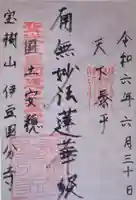 令和六年六月三十日
天下泰平
南無妙法蓮華経
国土安穏
宝樹山伊豆国分寺